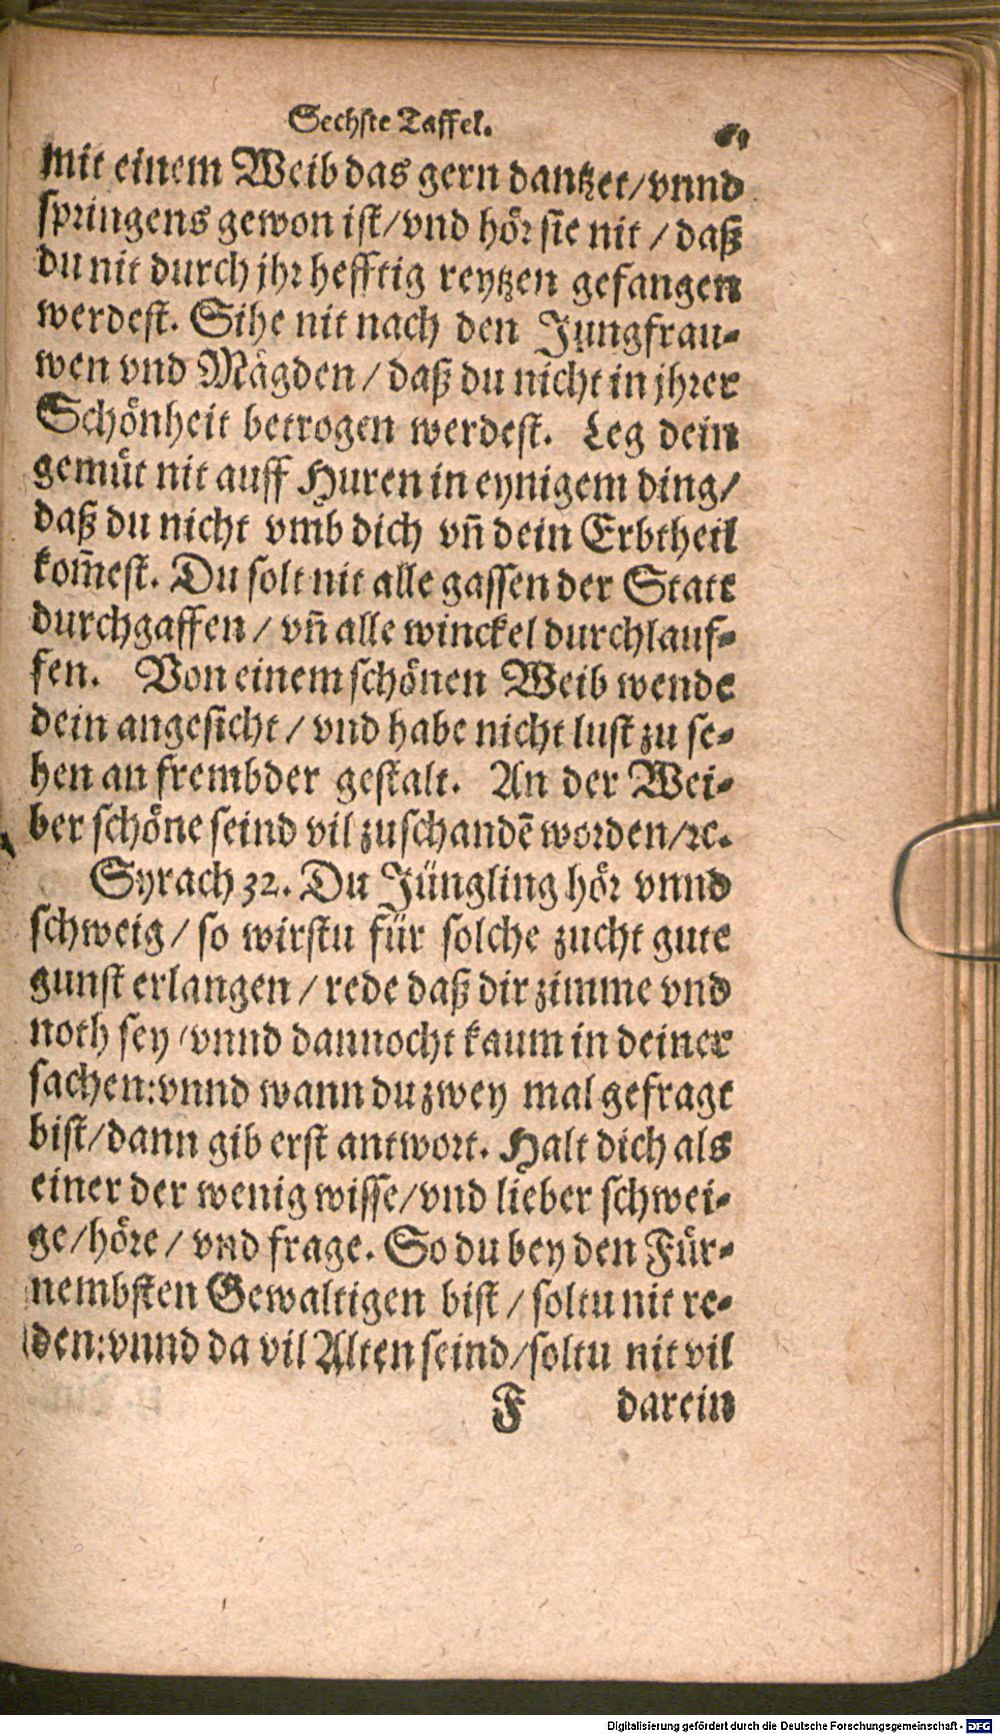 Sechste Taffel.
mit einem Weib das gern dantzet/vnnd
springens gewon ist/vnd hör sie nit / daß
du nit durch jhr hefftig reytzen gefangen
werdest. Sihe nit nach den Jungfrau-
wen vnd Mägden / daß du nicht in jhrer
Schönheit betrogen werdest. Leg dein
gemüt nit auff Huren in eynigem ding/
daß du nicht vmb dich vn̄ dein Erbtheil
kom̄est. Du solt nit alle gassen der Statt
durchgaffen / vn̄ alle winckel durchlauf-
fen. Von einem schönen Weib wende
dein angesicht / vnd habe nicht lust zu se-
hen an frembder gestalt. An der Wei-
ber schöne seind vil zuschandē worden/ꝛc.
Syrach 32. Du Jüngling hör vnnd
schweig / so wirstu für solche zucht gute
gunst erlangen / rede daß dir zimme vnd
noth sey / vnnd dannocht kaum in deiner
sachen: vnnd wann du zwey mal gefragt
bist/dann gib erst antwort. Halt dich als
einer der wenig wisse/vnd lieber schwei-
ge/höre / vnd frage. So du bey den Für-
nembsten Gewaltigen bist / soltu nit re-
den: vnnd da vil Alten seind/soltu nit vil
F darein
Digitalisierung gefördert durch die Deutsche Forschungsgemeinschaft - DFG